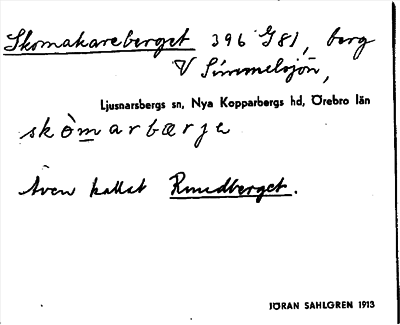 Skomakareberget 396 G81, berg
V Simmelsjön,
Ljusnarsbergs sn, Nya Kopparbergs hd, Örebro län
skòmarbærje
Även kallat Rundberget.
JÖRAN SAHLGREN 1913